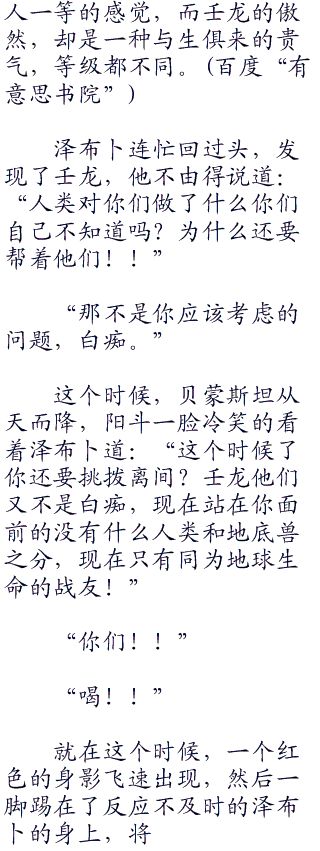 人一等的感觉，而壬龙的傲
然，却是一种与生俱来的贵
气，等级都不同。(百度“有
意思书院”)
泽布卜连忙回过头，发
现了壬龙，他不由得说道：
“人类对你们做了什么你们
自己不知道吗？为什么还要
帮着他们！！”
“那不是你应该考虑的
问题，白痴。”
这个时候，贝蒙斯坦从
天而降，阳斗一脸冷笑的看
着泽布卜道：“这个时候了
你还要挑拨离间？壬龙他们
又不是白痴，现在站在你面
前的没有什么人类和地底兽
之分，现在只有同为地球生
命的战友！”
“你们！！”
“喝！！”
就在这个时候，一个红
色的身影飞速出现，然后一
脚踢在了反应不及时的泽布
卜的身上，将